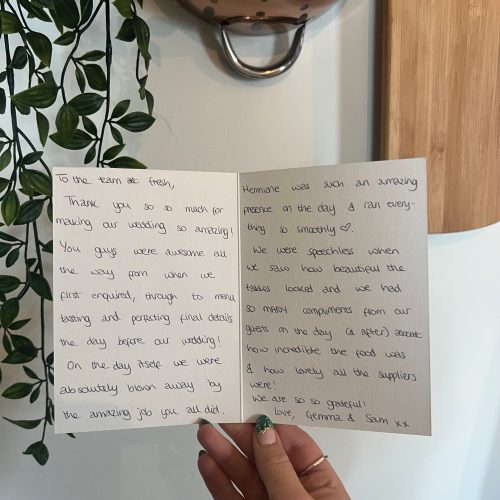 To the team at fresh,
Thank you so so much for
making our wedding so amazing!
You guys were awesome all
the way from when we
first enquired, through to menu
tasting and perfecting final details
the day before our wedding!
On the day itself we were
absolutely blown away by
the amazing job you all did.
Hermione was such an amazing
presence on the day & ran every-
thing so smoothly ♡.
We were speechless when
we saw how beautiful the
tables looked and we had
so many compliments from our
guests on the day (& after) about
how incredible the food was
& how lovely all the suppliers
were!
We are so so grateful!
Love, Gemma & Sam xx